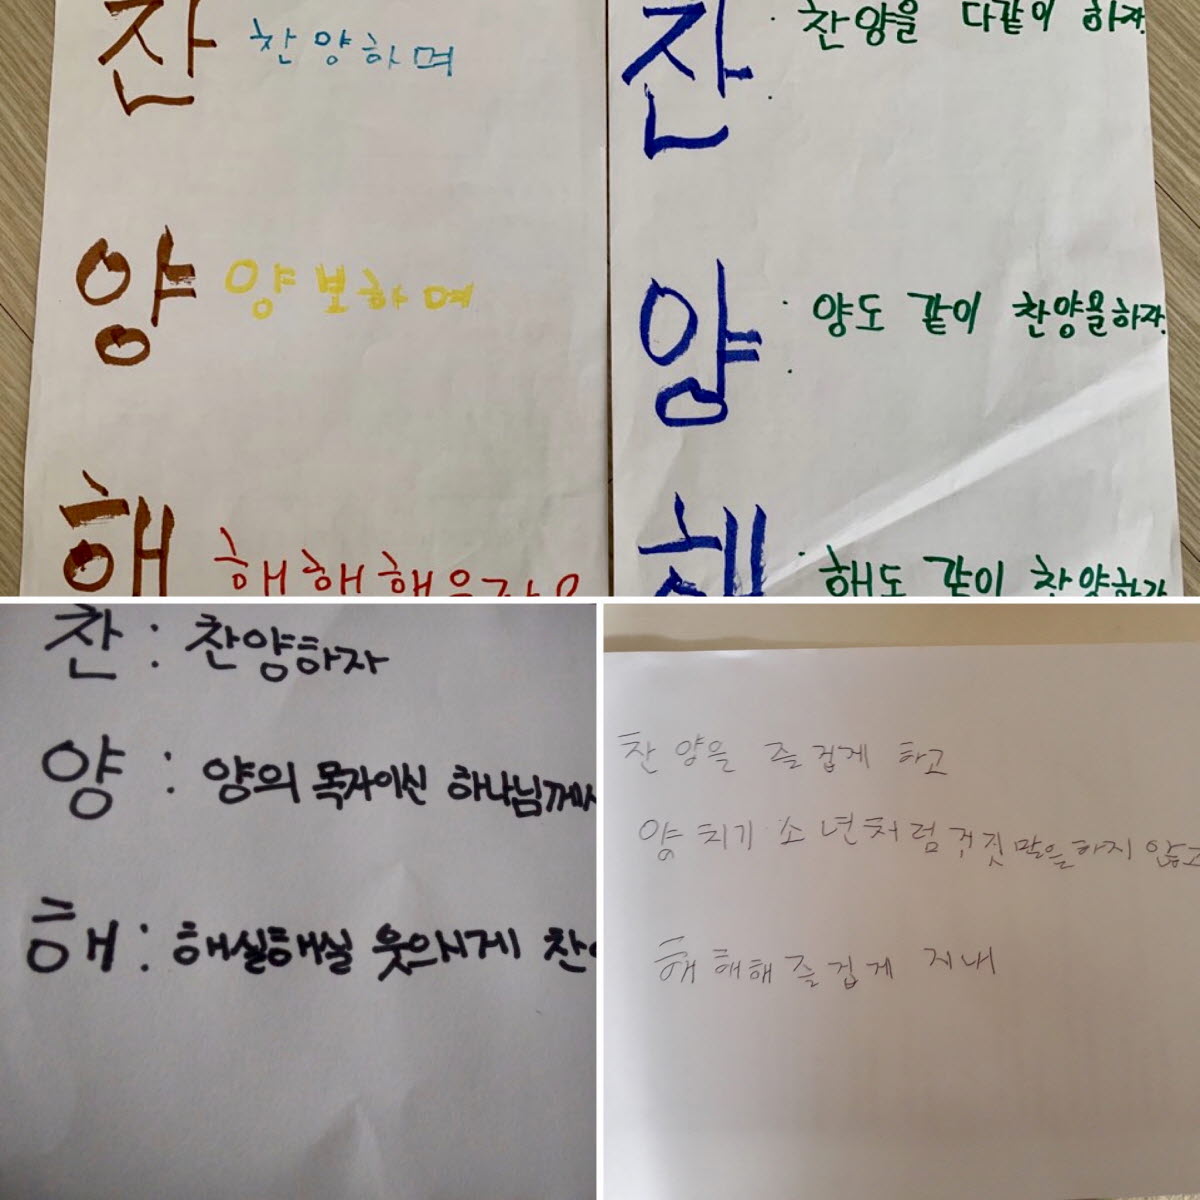 찬 찬양하며
양 양보하며
해 해해해웃자요
찬 찬양을 다같이 하자.
양 양도 같이 찬양을하자.
해 해도 같이 찬양하자
찬 : 찬양하자
양 : 양의 목자이신 하나님께서
해 : 해실해실 웃으시게 찬
찬양을 즐겁게 하고
양치기 소년처럼 거짓말을하지 않고
해해해 즐겁게 지내